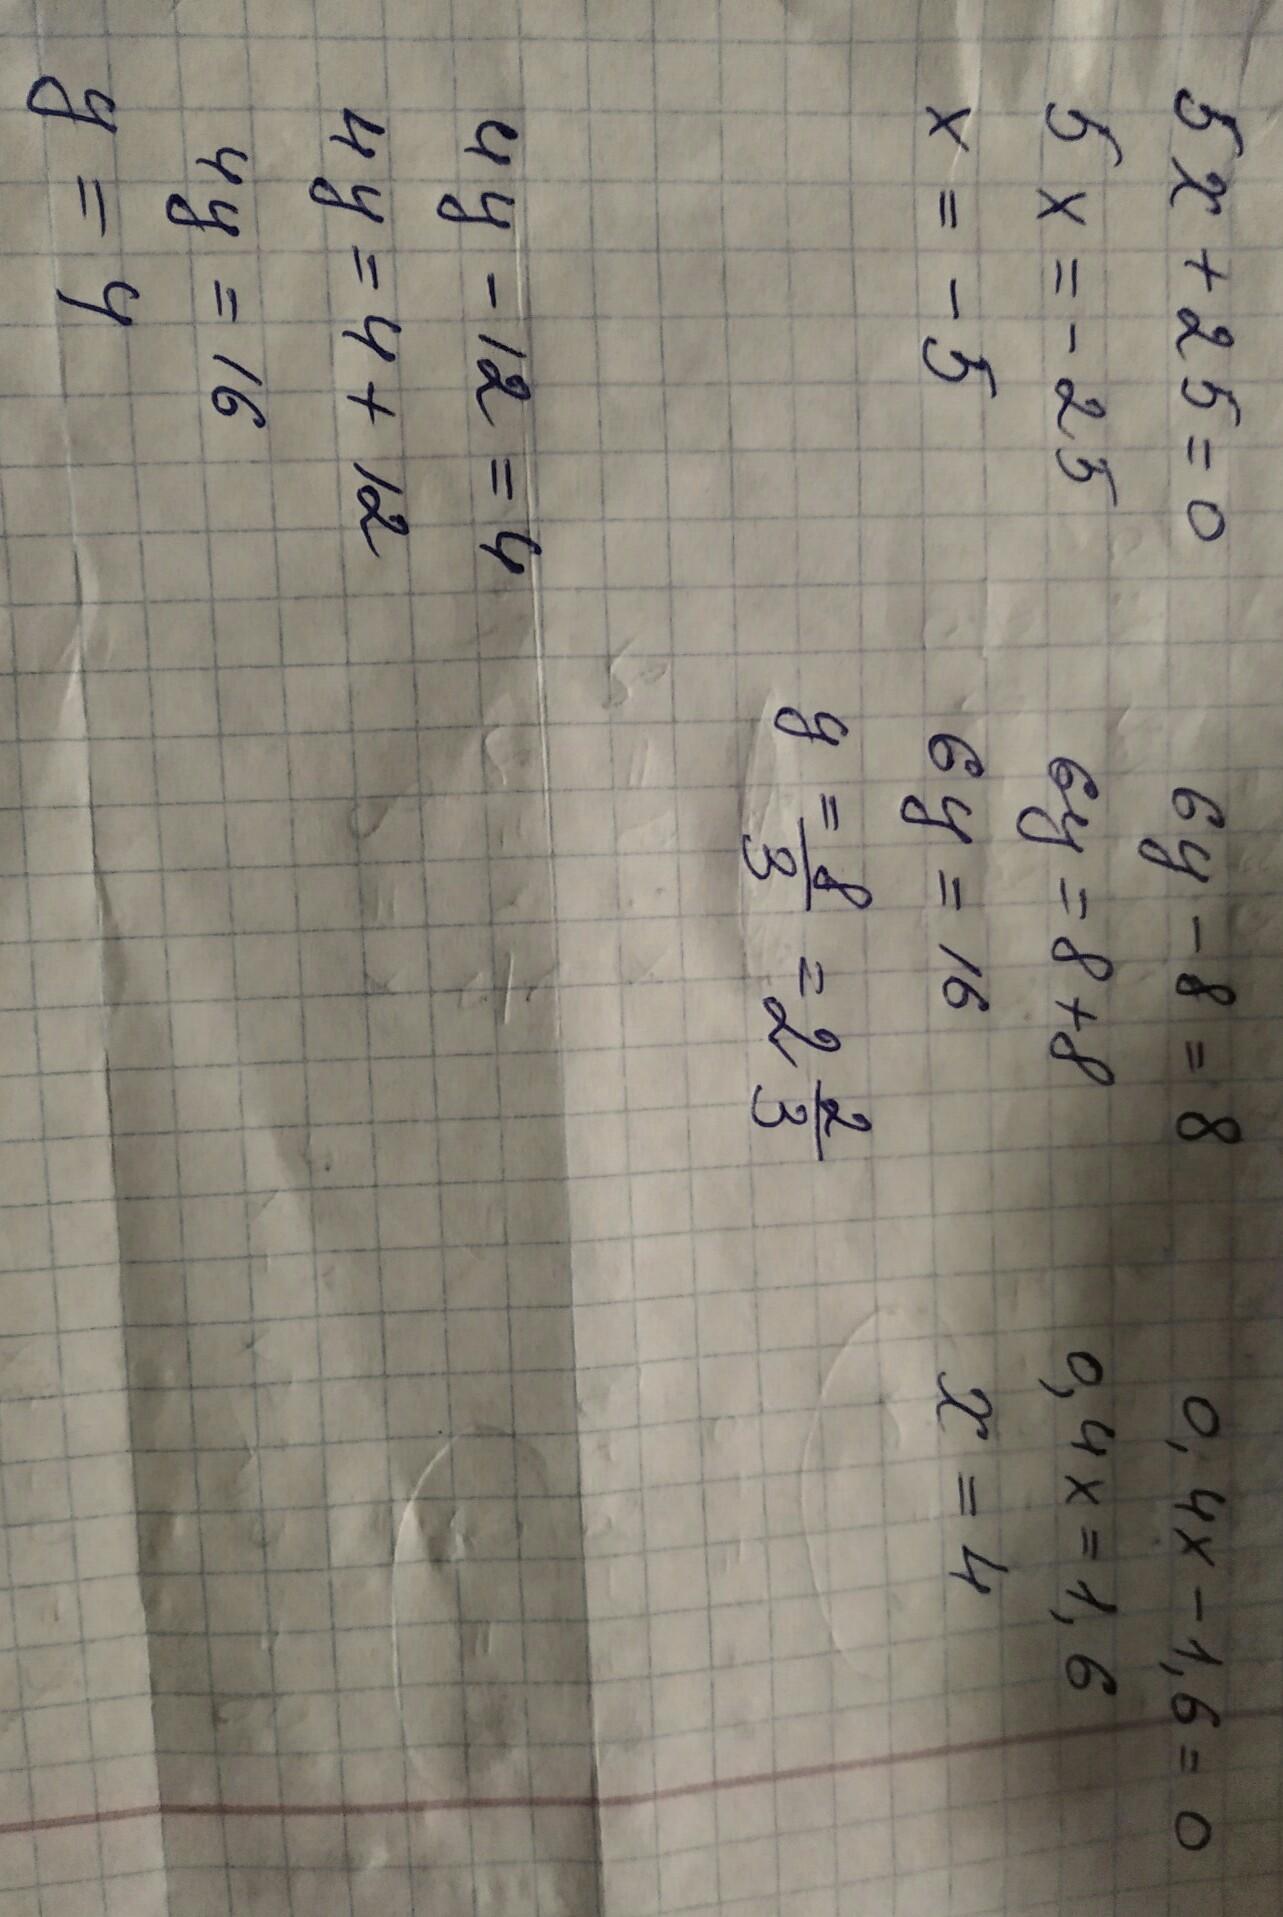 5x + 25 = 0
5x = - 25
x = - 5
6y - 8 = 8
6y = 8 + 8
6y = 16
y = 8/3 = 2 2/3
0,4x - 1,6 = 0
0,4x = 1,6
x = 4
4y - 12 = 4
4y = 4 + 12
4y = 16
y = 4